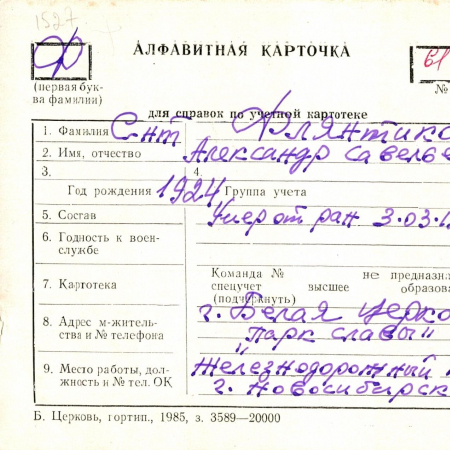 1527
Ф
АЛФАВИТНАЯ КАРТОЧКА
61
(первая бук-
ва фамилии)
№
для справок по учетной картотеке
1. Фамилия С-нт Флянтико
2. Имя, отчество Александр Савелье
3. 4.
Год рождения 1924 Группа учета
5. Состав Умер от ран 3.03.
6. Годность к воен-
службе
7. Картотека
Команда № не предназн
спецучет высшее образова
(подчеркнуть)
8. Адрес м-житель-
ства и № телефона
г. Белая Церко
"Парк славы"
9. Место работы, дол-
жность и № тел. ОК
Железнодорожный
г. Новосибирск
Б. Церковь, гортип., 1985, з. 3589—20000